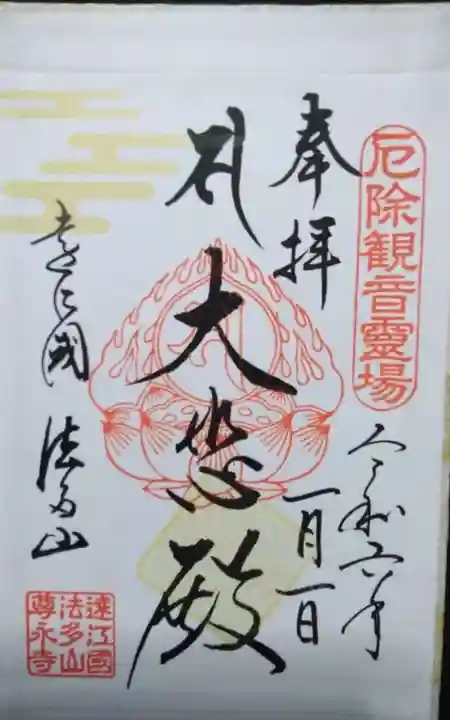 厄除観音靈場
奉拝
令和六年
一月一日
大悲殿
遠江國 法多山
遠江國
法多山
尊永寺